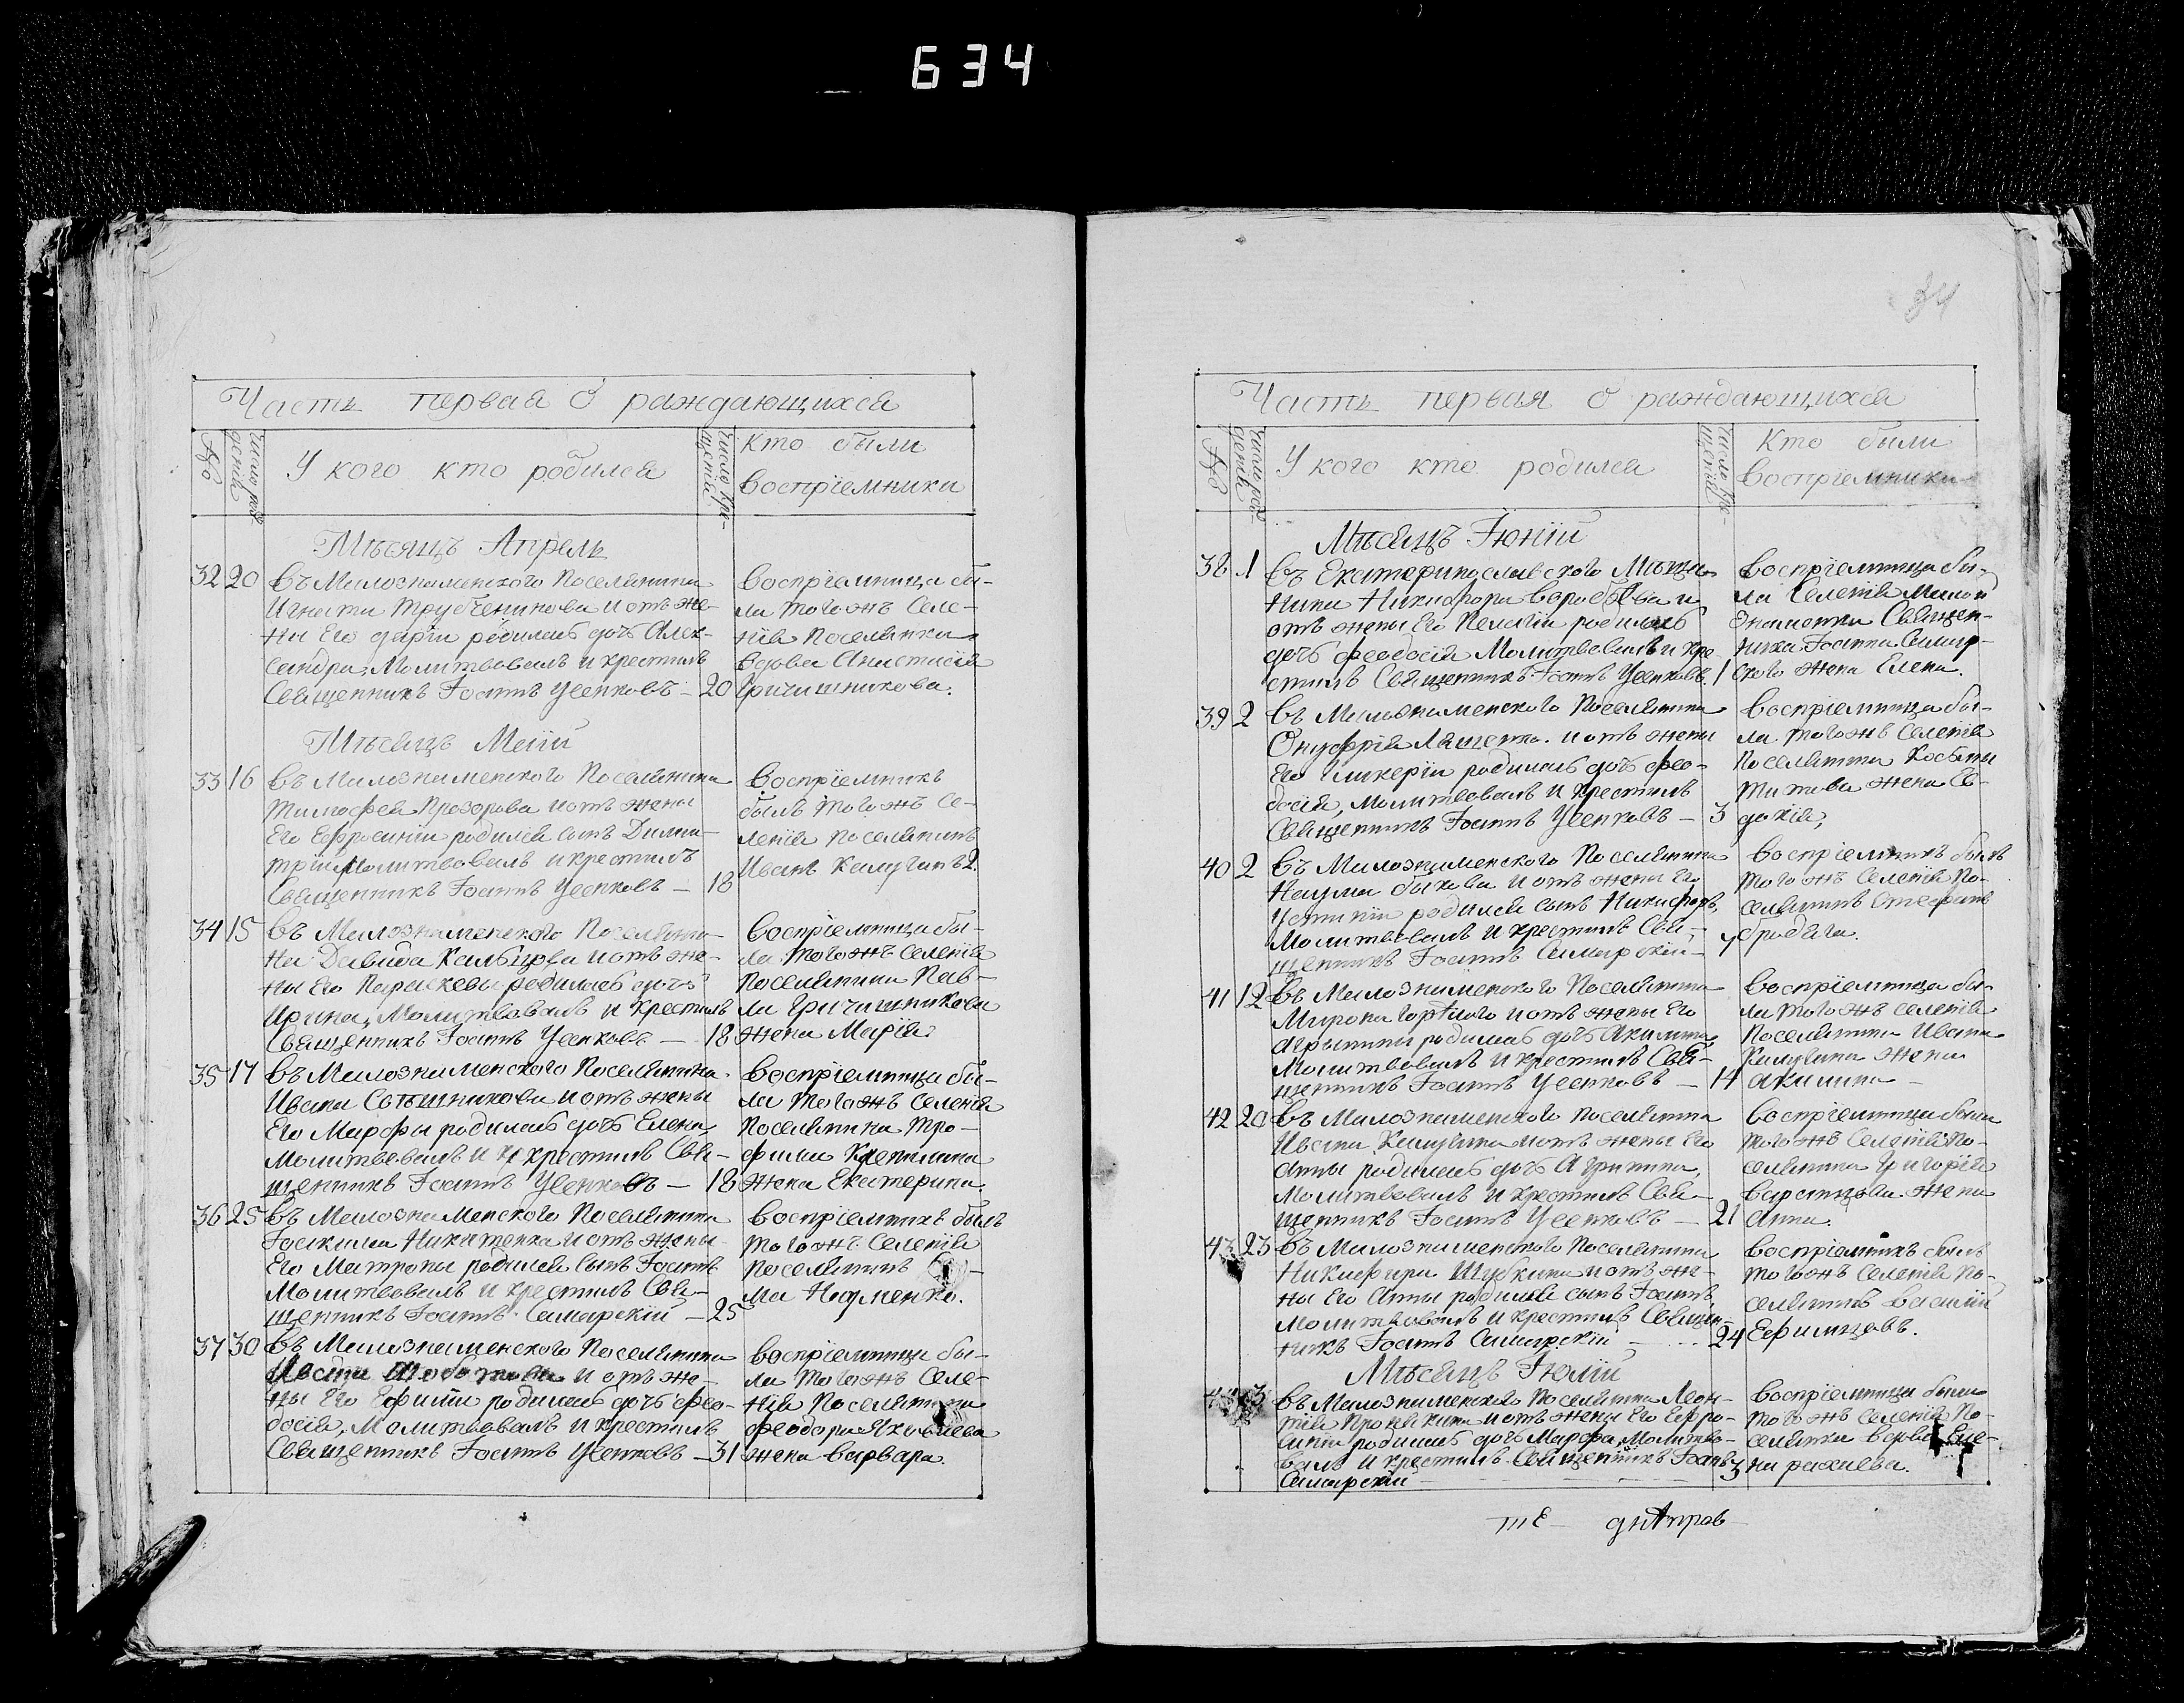 634
Часть первая о раждающихся
№
число рож
денiя
У кого кто родился
число кре-
щенiя
Кто были
воспрiемники
Мѣсяцъ Апрель
32 20 въ Милознаменского Поселянина
Игнатия Трубченинова и отъ же-
ны Его дарiи родилась дочь Алек-
сандра, Молитвовалъ и крестилъ
Священникъ Іоаннъ Усенковъ — 20
воспрiемница бы-
ла того жъ Селе-
нiя Поселянка
вдова Анастасiя
Гричишникова.
Мѣсяцъ Маiй
33 16 въ Милознаменского Поселянина
Тимофея Прозорова и отъ жены
Его Ефросинiи родился сынъ Дими-
трiй, Молитвовалъ и крестилъ
Священникъ Іоаннъ Усенковъ — 18
Воспрiемникъ
былъ того жъ Се-
ленiя поселянинъ
Иванъ Калугинъ.
34 15 въ Милознаменского Поселяни-
на Давида Кальцова и отъ же-
ны Его Параскевы родилась дочь
Ирина, Молитвовалъ и крестилъ
Священникъ Іоаннъ Усенковъ — 18
воспрiемница бы-
ла того жъ Селенiя
Поселянина Пав-
ла Гричишникова
жена Марiя.
35 17 въ Милознаменского Поселянина
Ивана Сотышникова и отъ жены
Его Марфы родилась дочь Елена,
Молитвовалъ и кр крестилъ Свя-
щенникъ Іоаннъ Усенковъ — 18
воспрiемница бы-
ла того жъ Селенiя
Поселянина Тро-
фима
жена Екатерина.
36 25 въ Милознаменского Поселянина
Іоакима Никитенка и отъ жены
Его Матроны родился сынъ Іоаннъ
Молитвовалъ и крестилъ Свя-
щенникъ Іоаннъ Самарскiй — 25
воспрiемникъ былъ
того жъ Селенiя
поселянинъ
ма Науменко.
37 30 въ Милознаменского Поселянина
Ивана и отъ же-
ны Его Ефимiи родилась дочь Фео-
досiя, Молитвовалъ и крестилъ
Священникъ Іоаннъ Усенковъ — 31
воспрiемница бы-
ла того жъ Селе-
нiя Поселянина
Феодора Яковлева
жена варвара.
34
Часть первая о раждающихся
№
число рож
денiя
У кого кто родился
число кре-
щенiя
Кто были
воспрiемники
Мѣсяцъ Іюнiй
38 1 въ Екатеринославского Мѣща-
нина Никифора Воробьева и
отъ жены Его Пелагiи родилась
дочь Феодосiя Молитвовалъ и кре-
стилъ Священникъ Іоаннъ Усенковъ. 1
воспрiемница бы-
ла Селенiя Мило-
знаменки Священ-
ника Іоанна Самар-
ского жена Елена.
39 2 въ Милознаменского Поселянина
Онуфрiя Лященка. и отъ жены
Его Гликерiи родилась дочь Фео-
досiя, молитвовалъ и крестилъ
Священникъ Іоаннъ Усенковъ — 3
воспрiемница бы-
ла того жъ Селенiя
Поселянина Косьмы
Титова жена Ев-
докiя,
40 2 въ Милознаменского Поселянина
Наума быкова и отъ жены Его
Устинiи родился сынъ Никифоръ,
Молитвовалъ и крестилъ Свя-
щенникъ Іоаннъ Самарскiй — 7
воспрiемникъ былъ
того жъ Селенiя По-
селянинъ Стефанъ
бродяга.
41 12 въ Милознаменского Поселянина
Мирона и отъ жены Его
Агрыпины родилась дочь Акилина,
Молитвовалъ и крестилъ Свя-
щенникъ Іоаннъ Усенковъ — 14
воспрiемница бы-
ла того жъ селенiя
Поселянина Ивана
Калугина жена
Акилина —
42 20 въ Милознаменского Поселянина
Ивана Калугина и отъ жены Его
Анны родилась дочь Агрипина,
Молитвовалъ и крестилъ Свя-
щенникъ Іоаннъ Усенковъ — 21
воспрiемница была
того жъ Селенiя По-
селянина Григорiя
жена
Анна.
43 23 въ Милознаменского Поселянина
Никифора Шубкина и отъ же-
ны Его Анны родился сынъ Іоаннъ,
Молитвовалъ и крестилъ Священ-
никъ Іоаннъ Самарскiй — 24
воспрiемникъ былъ
того жъ Селенiя По-
селянинъ Василiй
Ефимцовъ.
Мѣсяцъ Іюлiй
44 3 въ Милознаменского Поселянина Леон-
тiя и отъ жены Его Ефро-
синiи родилась дочь Марфа, Молитво-
валъ и крестилъ Священникъ Іоаннъ 3
Самарскiй
воспрiемница была
того жъ Селенiя По-
селянка вдова Еле-
на рахиева.